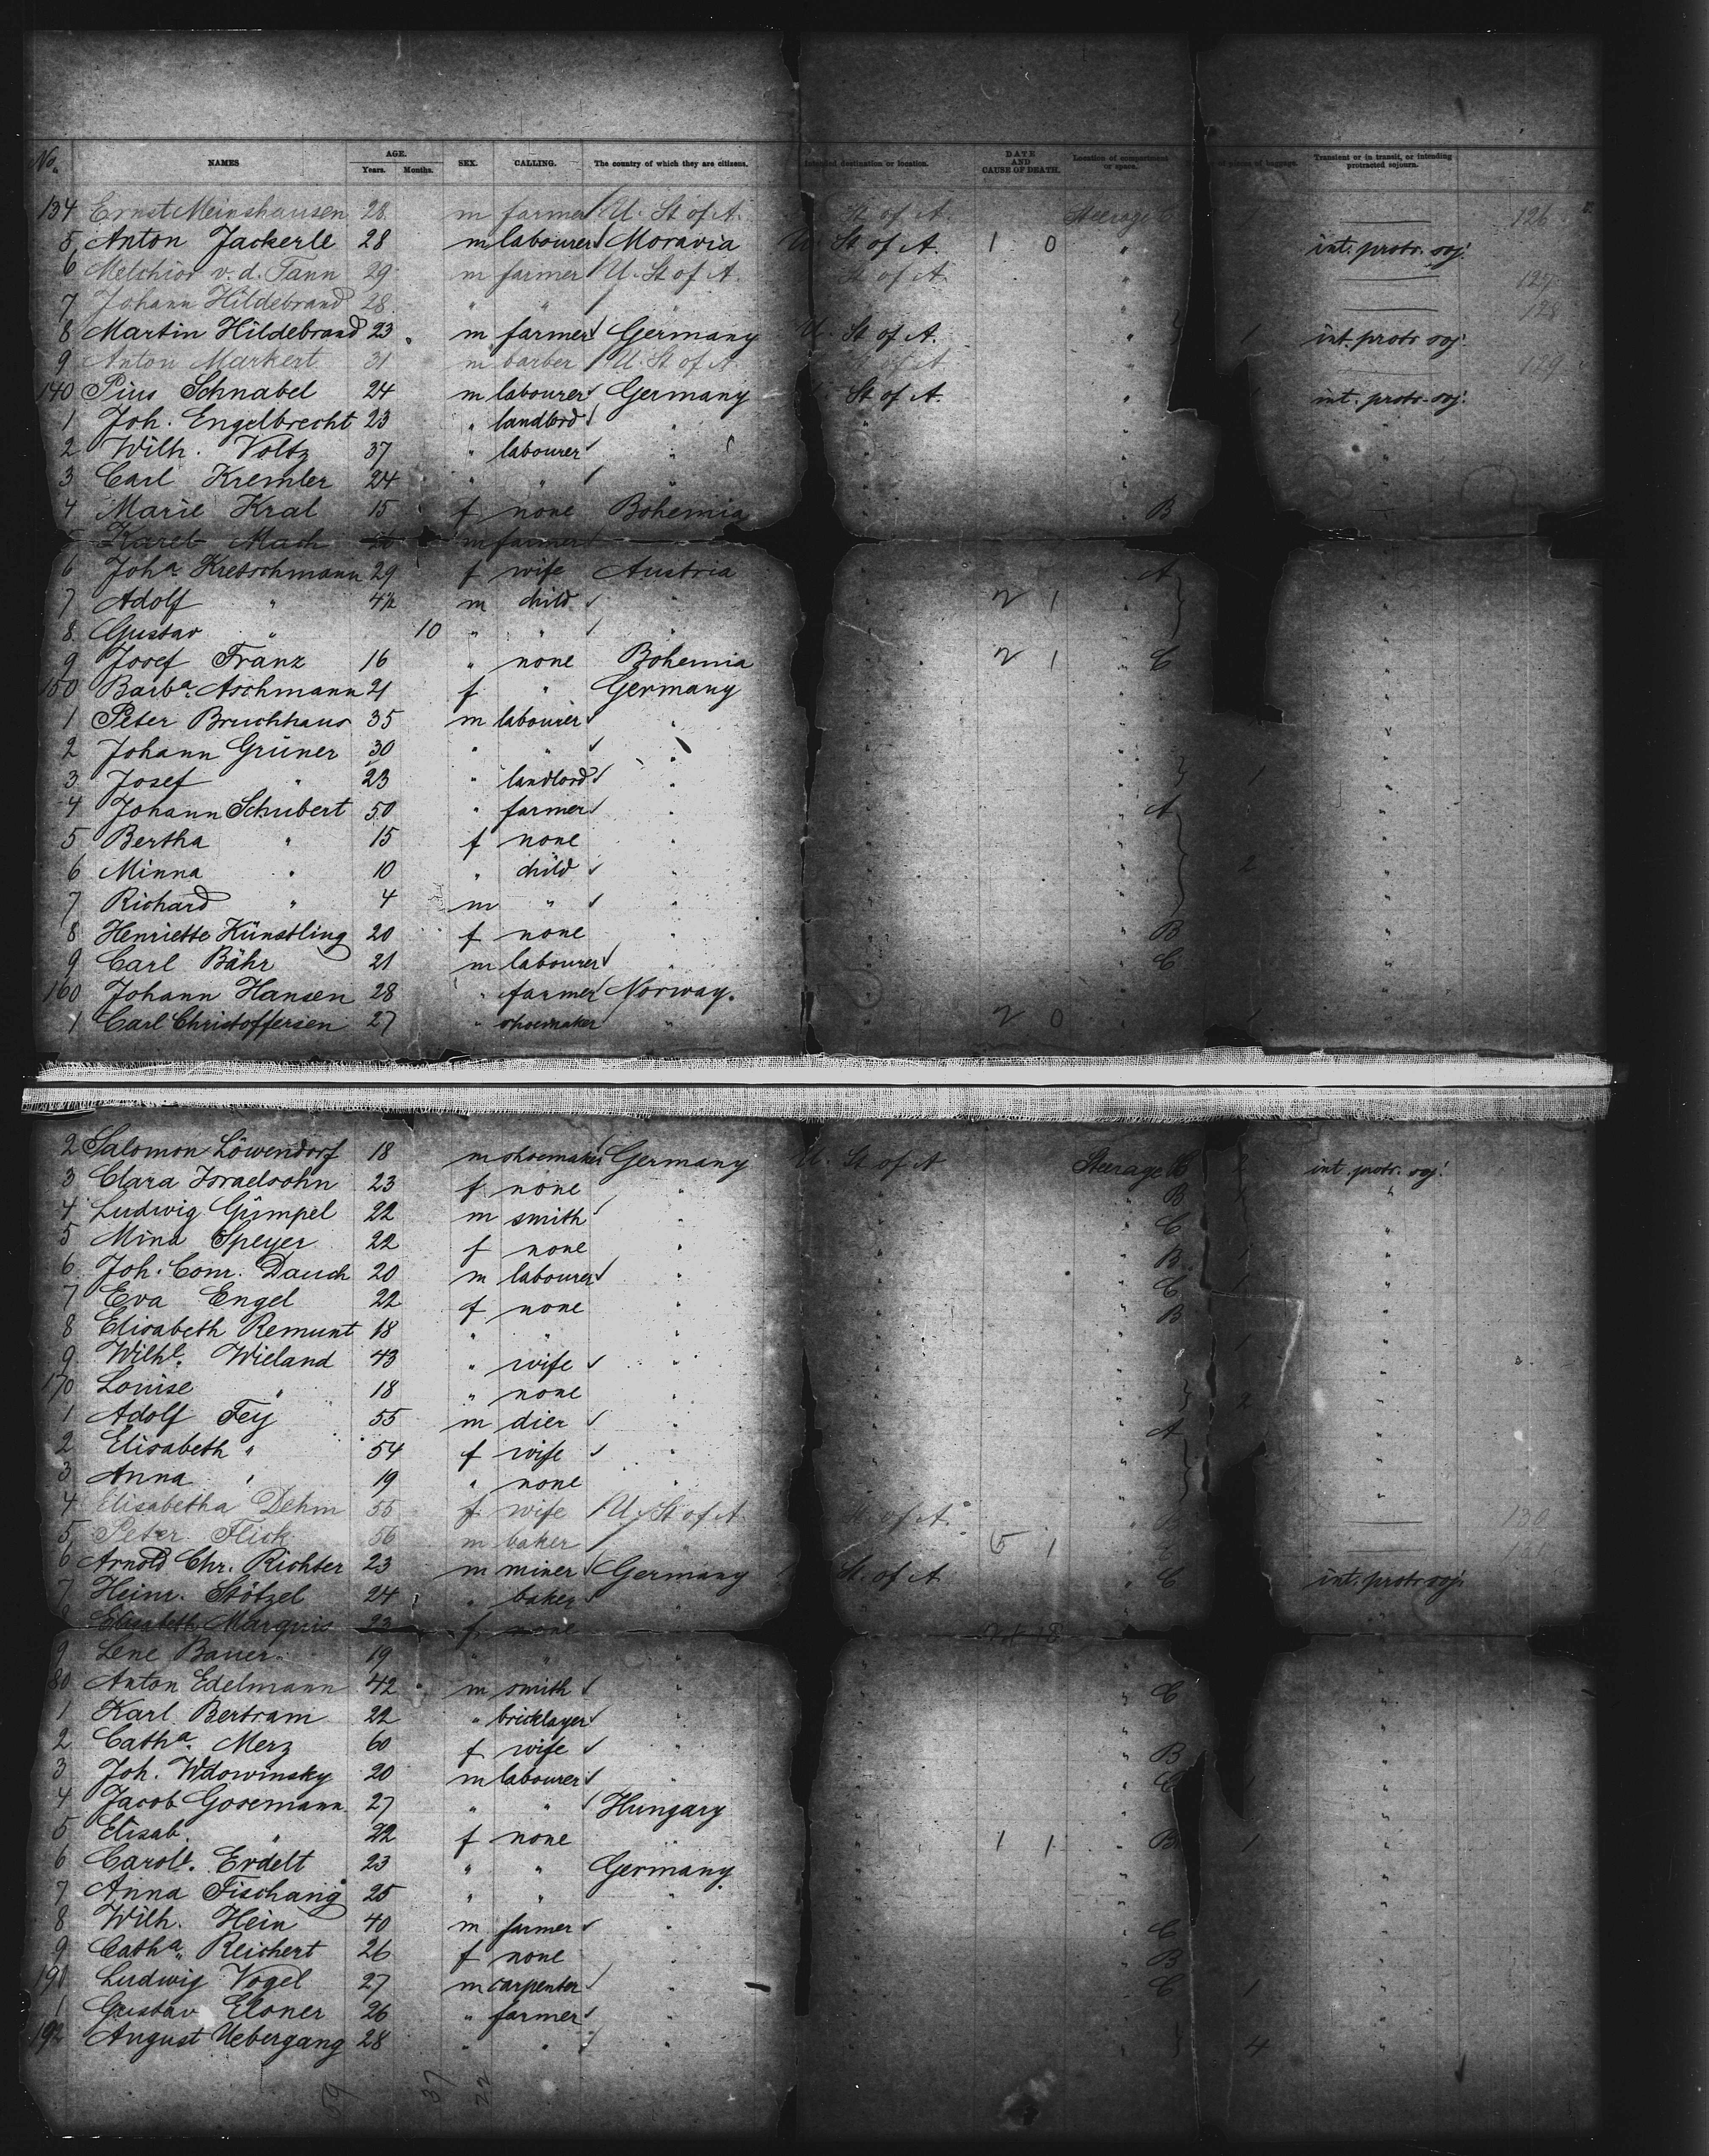 No. NAMES AGE. Years. Months. SEX. CALLING. The country of which they are citizens. destination or location. DATE AND CAUSE OF DEATH. Location of compartment or space. of baggage. Transient or in transit, or intending protracted sojourn.
134 Ernst Meinshausen 28 m farmer U. St of A. St of A. Steerage C 126
5 Anton Jackerle 28 m labourer Moravia U. St of A. 1 0 " int. protr. soj.
6 Melchior v. d. Tann 29 m farmer U. St of A. St of A. " 127
7 Johann Hildebrand 28 " " " 128
8 Martin Hildebrand 23 m farmer Germany U. St of A. " 1 int. protr soj.
9 Anton Markert 31 m barber U. St of A. St of A. 129
140 Pius Schnabel 24 m labourer Germany St of A. " int. protr. soj.
1 Joh. Engelbrecht 23 " landlord " " " "
2 Wilh. Voltz 37 " labourer " " " "
3 Carl Kremler 24 " " " " " "
4 Marie Kral 15 f none Bohemia " " B "
5 Karel Mach m farmer
6 Joha Kretschmann 29 f wife Austria A
7 Adolf " 4½ m child " 2 1 " "
8 Gustav " 10 " " " " "
9 Josef Franz 16 " none Bohemia " 2 1 " C "
150 Barba Aschmann 21 f " Germany " " "
1 Peter Bruchhaus 35 m labourer " " " "
2 Johann Grüner 30 " " " " " "
3 Josef " 23 " landlord " " " 1 "
4 Johann Schubert 50 " farmer " " A "
5 Bertha " 15 f none " " " "
6 Minna " 10 " child " " " 2 "
7 Richard " 4 m " " " " "
8 Henriette Künstling 20 f none " " " B "
9 Carl Bähr 21 m labourer " " " C "
160 Johann Hansen 28 " farmer Norway. " " "
1 Carl Christoffersen 27 " shoemaker " " 2 0 " 1 "
2 Salomon Löwendorf 18 m shoemaker Germany U. St of A Steerage C 2 int. protr. soj.
3 Clara Israelsohn 23 f none " " " B 1 "
4 Ludwig Gümpel 22 m smith " " " C "
5 Mina Speyer 22 f none " " " B "
6 Joh. Conr. Dauch 20 m labourer " " " C 1 "
7 Eva Engel 22 f none " " " B "
8 Elisabeth Remunt 18 " " " " " "
9 Wilhe. Wieland 43 " wife " " " 1 "
170 Louise " 18 " none " " " 2 "
1 Adolf Fey 55 m dier " " " A "
2 Elisabeth " 54 f wife " " " "
3 Anna " 19 " none " " " "
4 Elisabetha Dehm 55 f wife U. St of A St of A. " 130
5 Peter Flick 56 m baker " 5 1
6 Arnold Chr. Richter 23 m miner Germany St. of A " C int. protr soj.
7 Heinr. Stötzel 24 " baker " " " "
8 Elisabeth Marquis 23 f none
9 Lene Bauer 19 " " " " "
80 Anton Edelmann 42 m smith " " " C "
1 Karl Bertram 22 " bricklayer " " " "
2 Catha Merz 60 f wife " " " B "
3 Joh. Wdowinsky 20 m labourer " " " C 1 "
4 Jacob Gosemann 27 " " Hungary " " "
5 Elisab. " 22 f none " " 1 1 " B 1 "
6 Carole. Erdelt 23 " " Germany " " "
7 Anna Fischang 25 " " " " " "
8 Wilh. Hein 40 m farmer " " " C "
9 Catha Reichert 26 f none " " " B "
190 Ludwig Vogel 27 m carpenter " " " C 1 "
1 Gustav Elsner 26 " farmer " " " "
192 August Uebergang 28 " " " " " 4 "
59 37 22